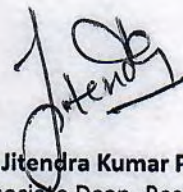 Jitendra
Jitendra Kumar P
Dean